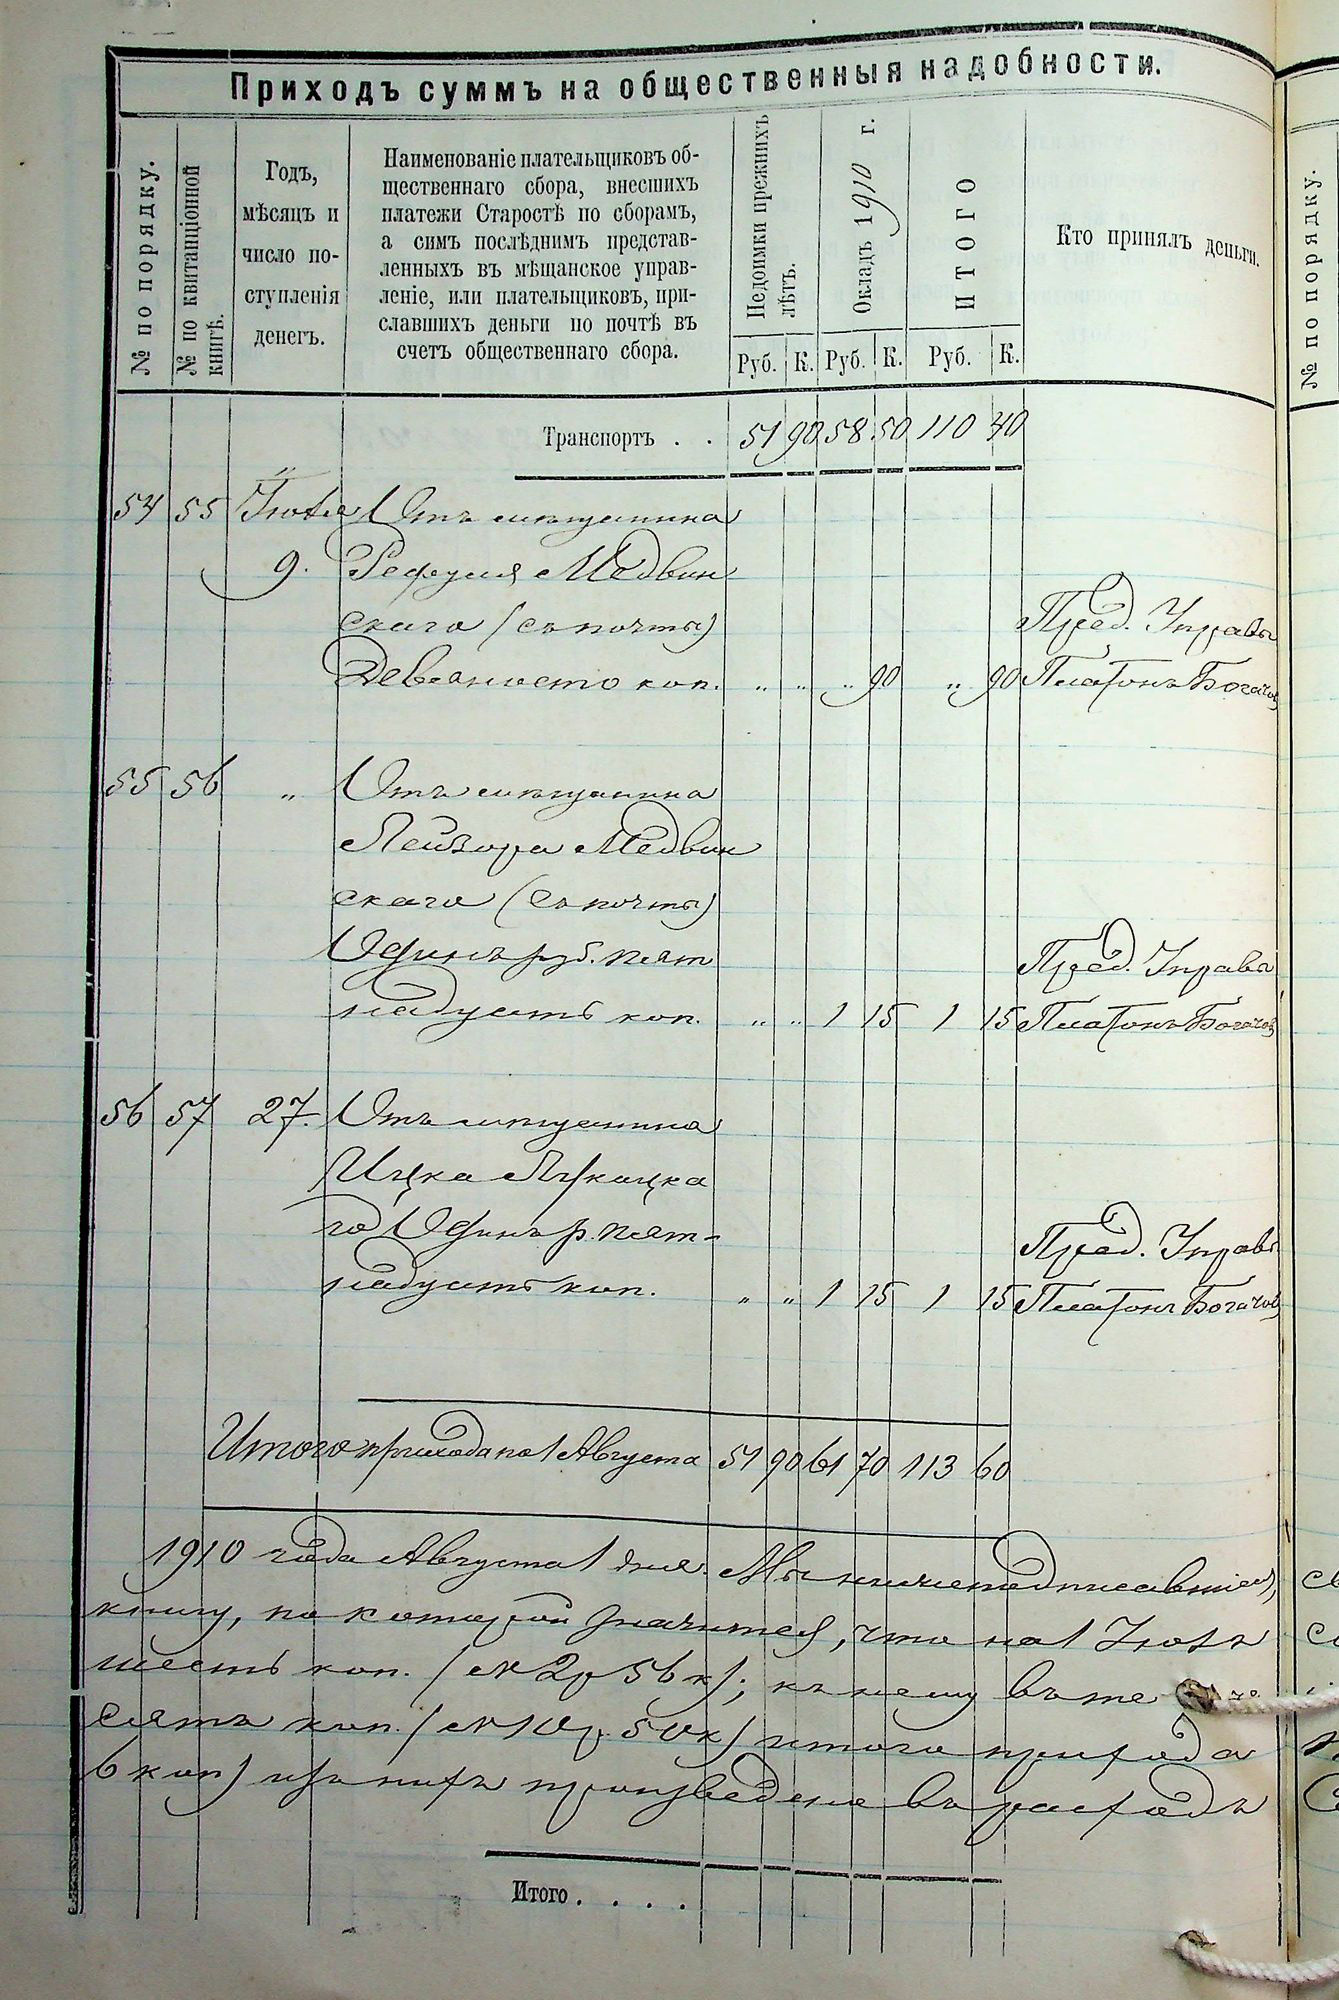 Приходъ суммъ на общественныя надобности.
№ по порядку.
№ по квитанціонной книгѣ.
Годъ,
мѣсяцъ и
число по-
ступленія
денегъ.
Наименованіе плательщиковъ об-
щественнаго сбора, внесшихъ
платежи Старостѣ по сборамъ,
а симъ послѣднимъ представ-
ленныхъ въ мѣщанское управ-
леніе, или плательщиковъ, при-
славшихъ деньги по почтѣ въ
счетъ общественнаго сбора.
Недоимки прежнихъ лѣтъ.
Окладъ 1910 г.
ИТОГО
Кто принялъ деньги.
Руб. К. Руб. К. Руб. К.
№ по порядку.
Транспортъ . . 51 90 58 50 110 40
54 55 Іюля Отъ мѣщанина
9. Медвин
скаго (съ почты) Пред. Управы
Девяносто коп. " " " 90 " 90 Платонъ Богачов
55 56 " Отъ мѣщанина
Лейзора Медвин
скаго (съ почты)
Одинъ руб. пят Пред. Управы
надцать коп. " " 1 15 1 15 Платонъ Богачов
56 57 27. Отъ мѣщанина
Ицка
го Одинъ р. пят- Пред. Управы
надцать коп. " " 1 15 1 15 Платонъ Богачов
Итого прихода по 1 Августа 51 90 61 70 113 60
1910 года Августа 1 дня. Мы нижеподписавшіеся,
книгу, по которой значится, что на 1 Іюля
шесть коп. ( 2р 56к); къ нему въ
сятъ коп. ( 10р. 50к) итого прихода
6 коп) изъ нихъ произведено въ расходъ
Итого . . . .